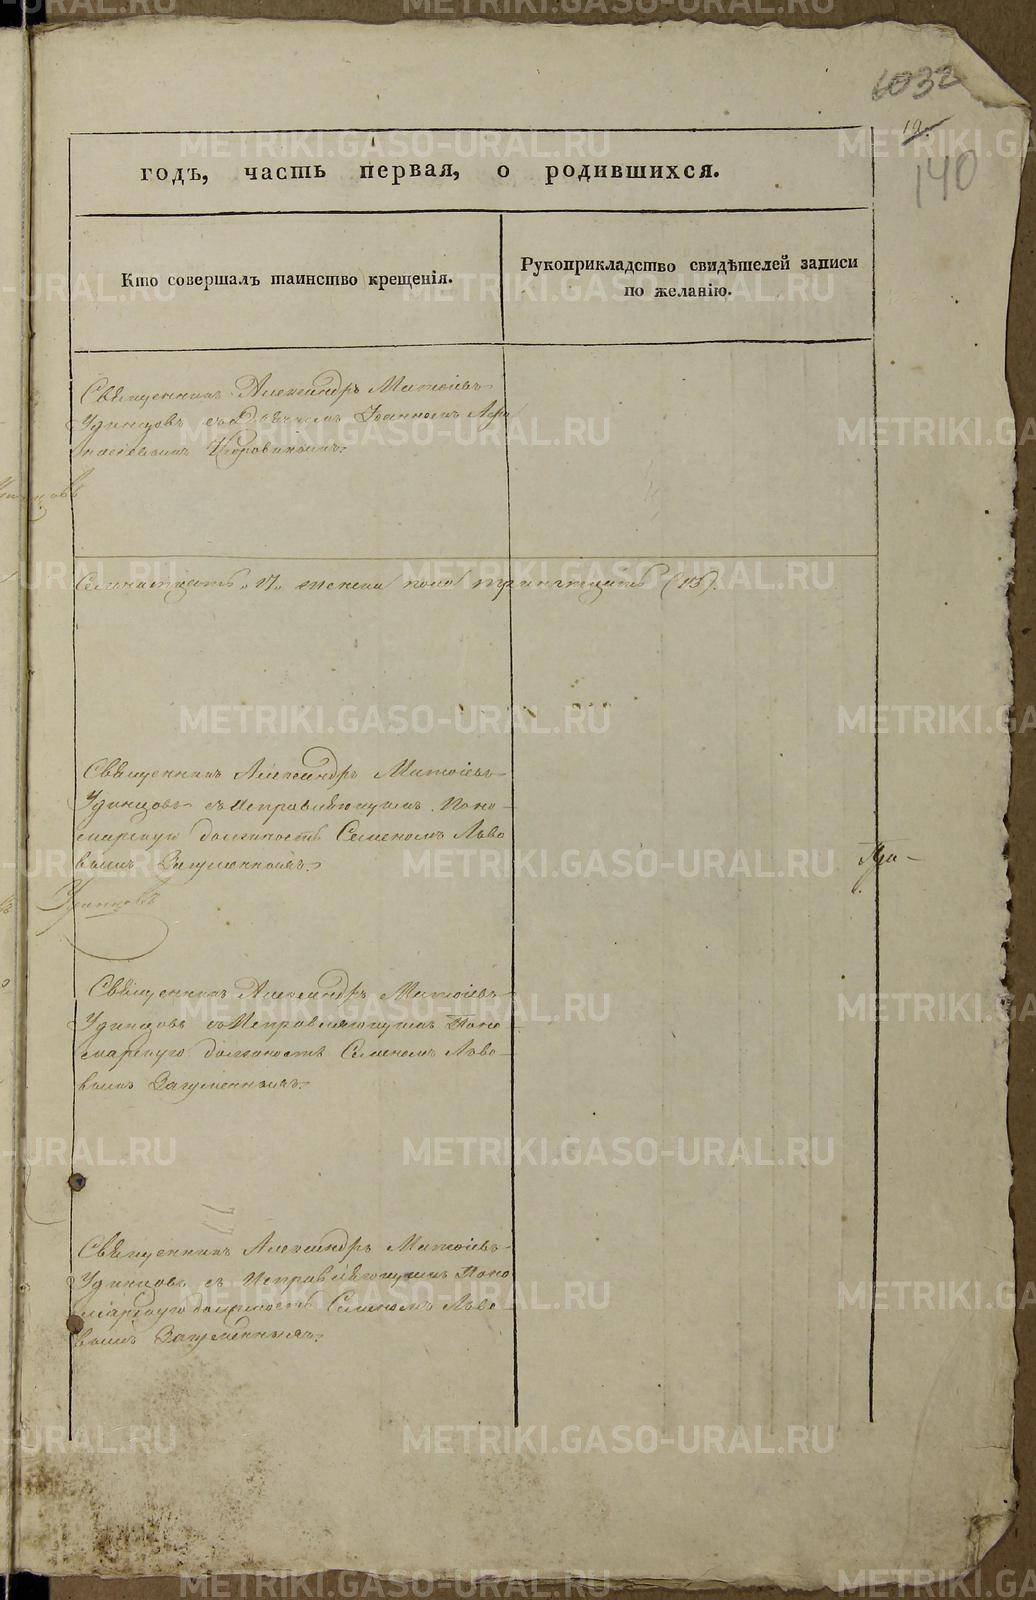 1032
19.
140
годъ, часть первая, о родившихся.
Кто совершалъ таинство крещенія.
Рукоприкладство свидѣтелей записи
по желанію.
Священникъ Александръ Матѳіевъ
Удинцовъ съ Дьячкомъ Іоанномъ Аѳа
насьевымъ Коровинымъ.
Семнатцать „17„ женска пола тринатцать (13).
Священникъ Александръ Матѳіевъ
Удинцовъ съ Исправляющимъ Поно-
марскую должность Семеномъ Льво
вымъ Загуменныхъ.
Удинцовъ
Священникъ Александръ Матѳіевъ
Удинцовъ съ Исправляющимъ Поно
марскую должность Семеномъ Льво-
вымъ Загуменныхъ.
Священникъ Александръ Матѳіевъ
Удинцовъ съ Исправляющимъ Поно
марскую должность Семеномъ Льво-
вымъ Загуменныхъ.
METRIKI.GASO-URAL.RU